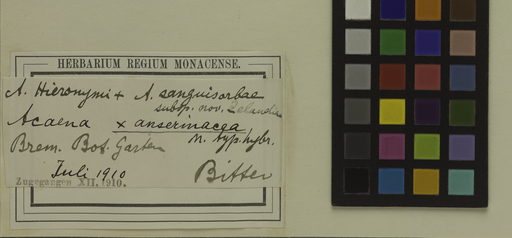 HERBARIUM REGIUM MONACENSE.
A. Hieronymi + A. sanguisorbae
subsp. nov. Zelandiae
Acaena × anserinacea
n. typ. hybr.
Brem. Bot. Garten
Juli 1910
Bitter
Zugegangen XII. 1910.